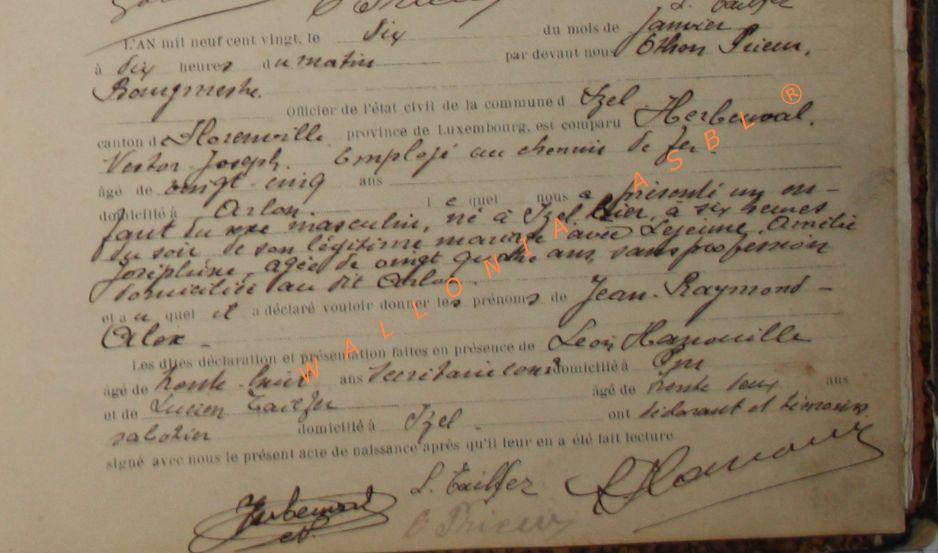 L. Tailfer
L'AN mil neuf cent vingt, le dix du mois de Janvier
à dix heures du matin par devant nous Othon Prieur,
Bourgmestre.
Officier de l'état civil de la commune d Izel
canton de Florenville, province de Luxembourg, est comparu Herbeuval,
Victor-Joseph. Employé au chemin de fer
âgé de vingt-cinq ans
domicilié à Arlon. le quel nous a présenté un en-
fant du sexe masculin, né à Izel, hier, à six heures
du soir de son légitime mariage avec Lejeune, Amélie
Joséphine, agée de vingt quatre ans, sans profession
domiciliée au dit Arlon
et au quel il a déclaré vouloir donner les prénoms de Jean-Raymond-
Alex-
Les dites déclaration et présentation faites en présence de Léon Hanouille
âgé de trente-huit ans secrétaire com domicilié à
et de Lucien Tailfer âgé de trente deux ans
sabotier domicilié à Izel. ont déclarant et témoins
signé avec nous le présent acte de naissance après qu'il leur en a été fait lecture
Herbeuval
L. Tailfer
L Hanouille
O Prieur
WALLONIA ASBL ®